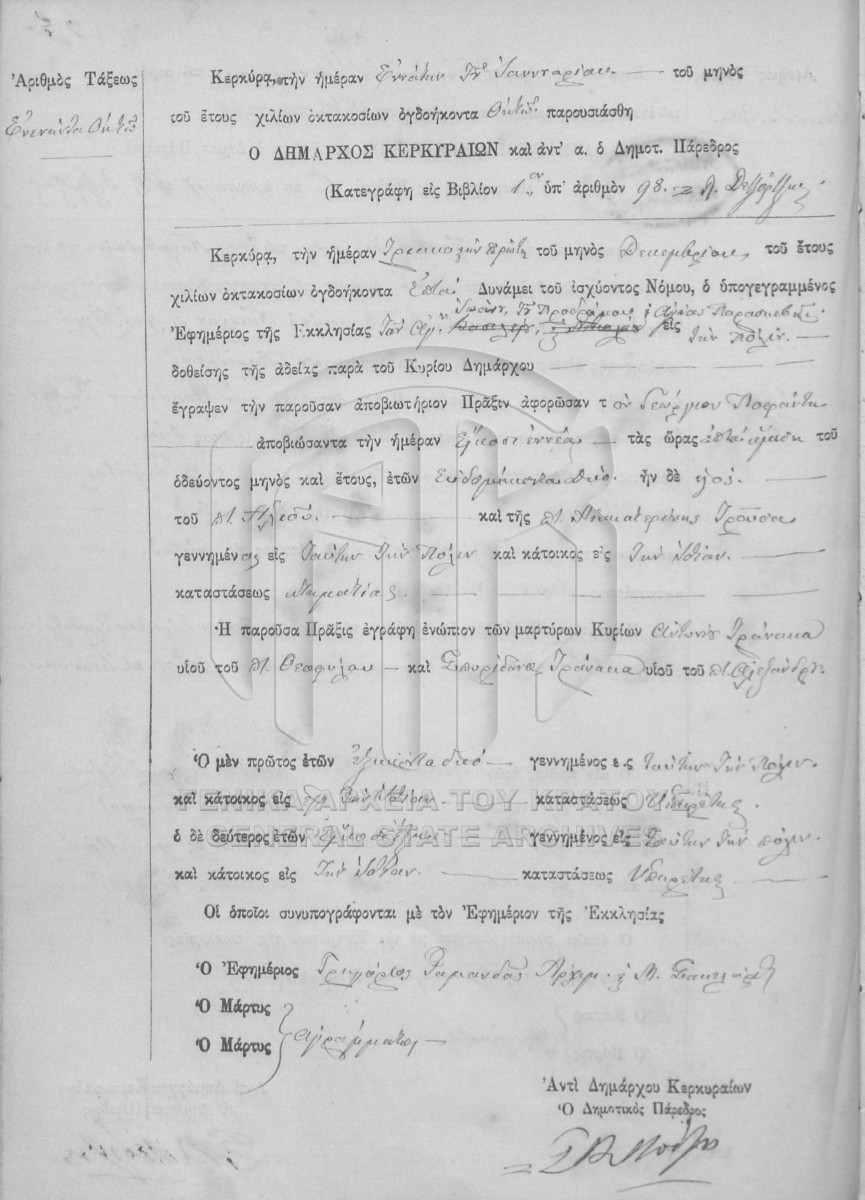 Ἀριθμὸς Τάξεως
Ἐνενήντα Ὀκτὼ
Κερκύρᾳ, τὴν ἡμέραν Ἐννάτην τοῦ Ἰαννουαρίου τοῦ μηνὸς
τοῦ ἔτους χιλίων ὀκτακοσίων ὀγδοήκοντα Ὀκτὼ παρουσιάσθη
Ο ΔΗΜΑΡΧΟΣ ΚΕΡΚΥΡΑΙΩΝ καὶ ἀντ' α. ὁ Δημοτ. Πάρεδρος
(Κατεγράφη εἰς Βιβλίον 1ον ὑπ' ἀριθμὸν 98.
Κερκύρᾳ, τὴν ἡμέραν Τριακοστὴν πρώτη τοῦ μηνὸς Δεκεμβρίου τοῦ ἔτους
χιλίων ὀκτακοσίων ὀγδοήκοντα Ἑπτά. Δυνάμει τοῦ ἰσχύοντος Νόμου, ὁ ὑπογεγραμμένος
Ἰωάνν. τοῦ Προδρόμου & Ἁγίας Παρασκευῆς
Ἐφημέριος τῆς Εκκλησίας Τῶν Ἁγ. εἰς τὴν Πόλιν.
δοθείσης τῆς ἀδείας παρὰ τοῦ Κυρίου Δημάρχου
ἔγραψεν τὴν παροῦσαν ἀποβιωτήριον Πρᾶξιν ἀφορῶσαν τ ὸν Γεώργιον
ἀποβιώσαντα τὴν ἡμέραν Εἴκοσι ἐννέα τὰς ὥρας ἑπτὰ τοῦ
ὁδεύοντος μηνὸς καὶ ἔτους, ἐτῶν Ἑβδομήκοντα δύο. ἦν δὲ υἱός.
τοῦ π. Ἠλιοῦ. καὶ τῆς π. Αἰκατερίνης
γεννημένος εἰς Ταύτην τὴν Πόλιν καὶ κάτοικος εἰς τὴν ἰδίαν.
καταστάσεως κτηματίας.
Ἡ παροῦσα Πρᾶξις ἐγράφη ἐνώπιον τῶν μαρτύρων Κυρίων Ἀντωνίου Τρανακα
υἱοῦ τοῦ π. Θεοφίλου καὶ Σπυρίδωνος Τρανακα υἱοῦ τοῦ π. Ἀλεξάνδρου
Ὁ μὲν πρῶτος ἐτῶν ἑξήκοντα δύο γεννημένος ε ς ταύτην τὴν Πόλιν
καὶ κάτοικος εἰς τὴν ἰδίαν καταστάσεως Ὑπηρέτης.
ὁ δὲ δεύτερος ἐτῶν Εἴκοσι γεννημένος εἰς ταύτην τὴν πόλιν.
καὶ κάτοικος εἰς τὴν ἰδίαν. καταστάσεως Ὑπηρέτης.
Οἱ ὁποῖοι συνυπογράφονται μὲ τὸν Ἐφημέριον τῆς Ἐκκλησίας
Ὁ Ἐφημέριος Γρηγόριος Ψαμανδᾶς Ἀρχιμ. & Μ. Σακελάρης
Ὁ Μάρτυς
Ὁ Μάρτυς
ἀγράμματοι
Ἀντὶ Δημάρχου Κερκυραίων
Ὁ Δημοτικὸς Πάρεδρος
ΓΕΝΙΚΑ ΑΡΧΕΙΑ ΤΟΥ ΚΡΑΤΟΥΣ
GENERAL STATE ARCHIVES